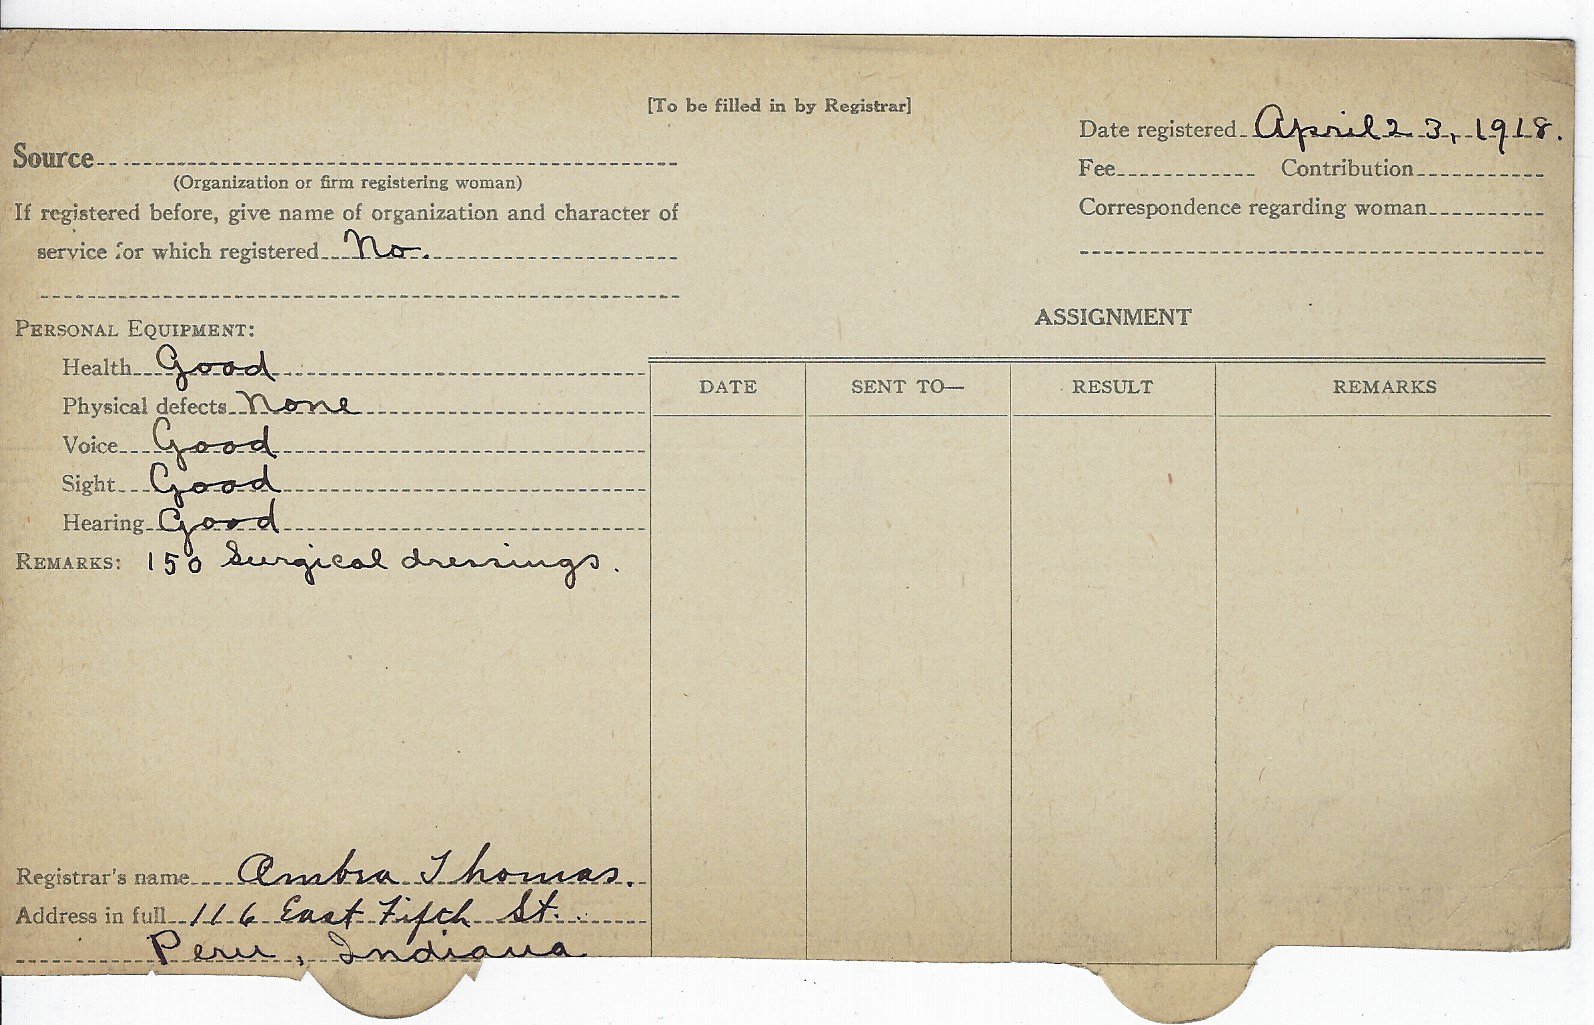 [To be filled in by Registrar]
Date registered April 23, 1918.
Source
(Organization or firm registering woman)
Fee Contribution
If registered before, give name of organization and character of
Correspondence regarding woman
service for which registered No.
PERSONAL EQUIPMENT:
ASSIGNMENT
Health Good
DATE SENT TO— RESULT REMARKS
Physical defects None
Voice Good
Sight Good
Hearing Good
REMARKS: 150 Surgical dressings.
Registrar's name Ambra Thomas.
Address in full 116 East Fifth St.
Peru, Indiana